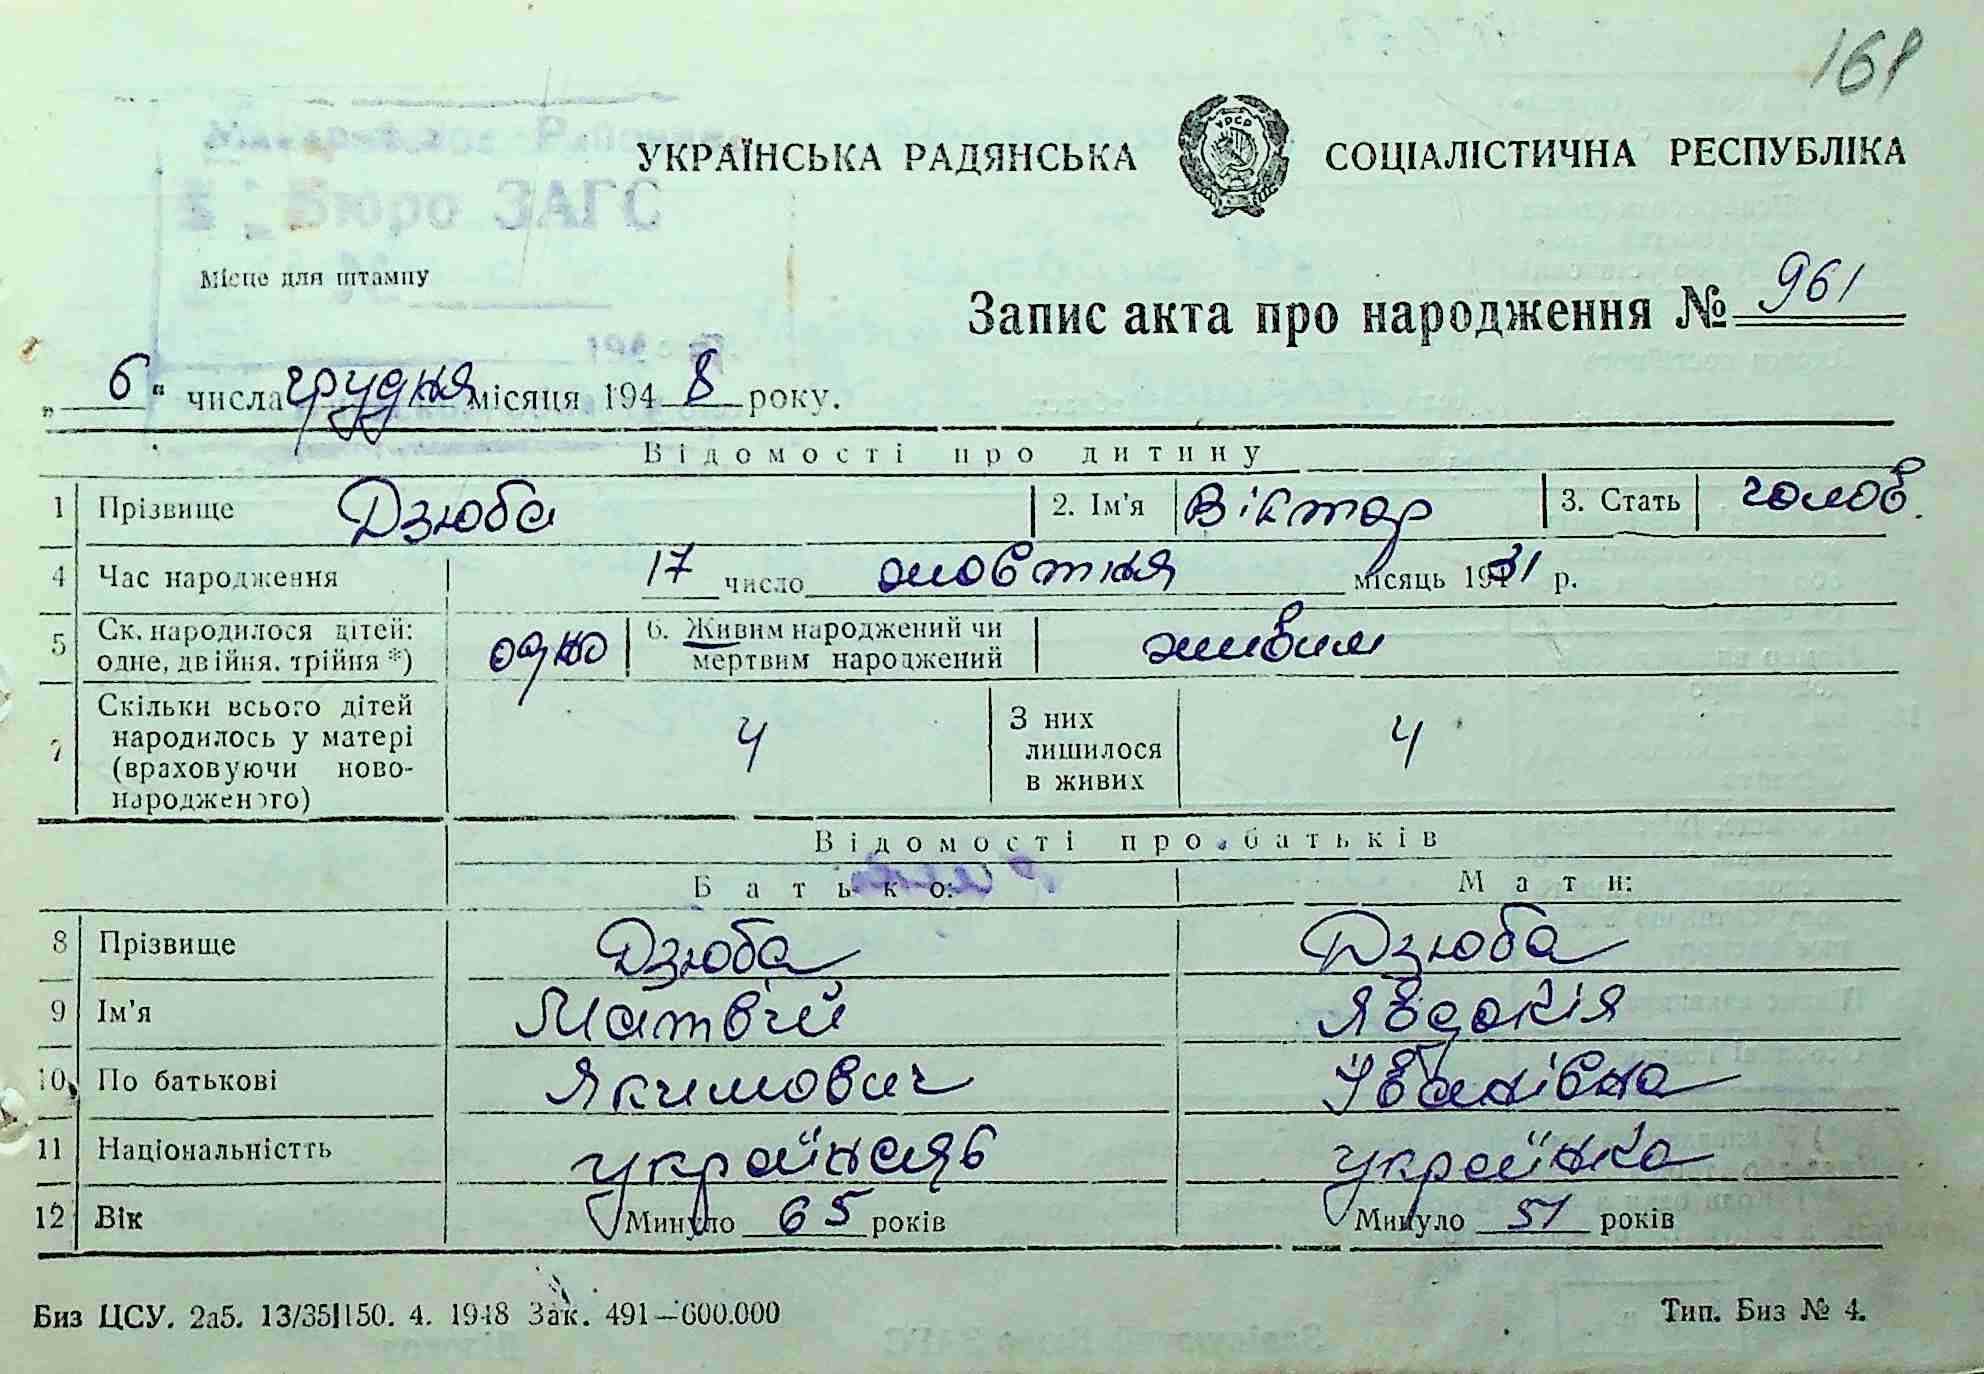 168
УКРАЇНСЬКА РАДЯНСЬКА СОЦІАЛІСТИЧНА РЕСПУБЛІКА
УРСР
Бюро ЗАГС
Місце для штампу
Запис акта про народження № 961
„ 6 “ числа грудня місяця 194 8 року.
Відомості про дитину
1 Прізвище Дзюба 2. Ім'я Віктор 3. Стать чолов.
4 Час народження 17 число жовтня місяць 1931 р.
5 Ск. народилося дітей: одне, двійня, трійня *) одно 6. Живим народжений чи мертвим народжений живим
7 Скільки всього дітей народилось у матері (враховуючи ново-народженого) 4 З них лишилося в живих 4
Відомості про батьків
Батько: Мати:
8 Прізвище Дзюба Дзюба
9 Ім'я Матвій Явдокія
10 По батькові Якимович Іванівна
11 Національністть українець українка
12 Вік Минуло 65 років Минуло 51 років
Биз ЦСУ. 2а5. 13/35|150. 4. 1948 Зак. 491—600.000 Тип. Биз № 4.